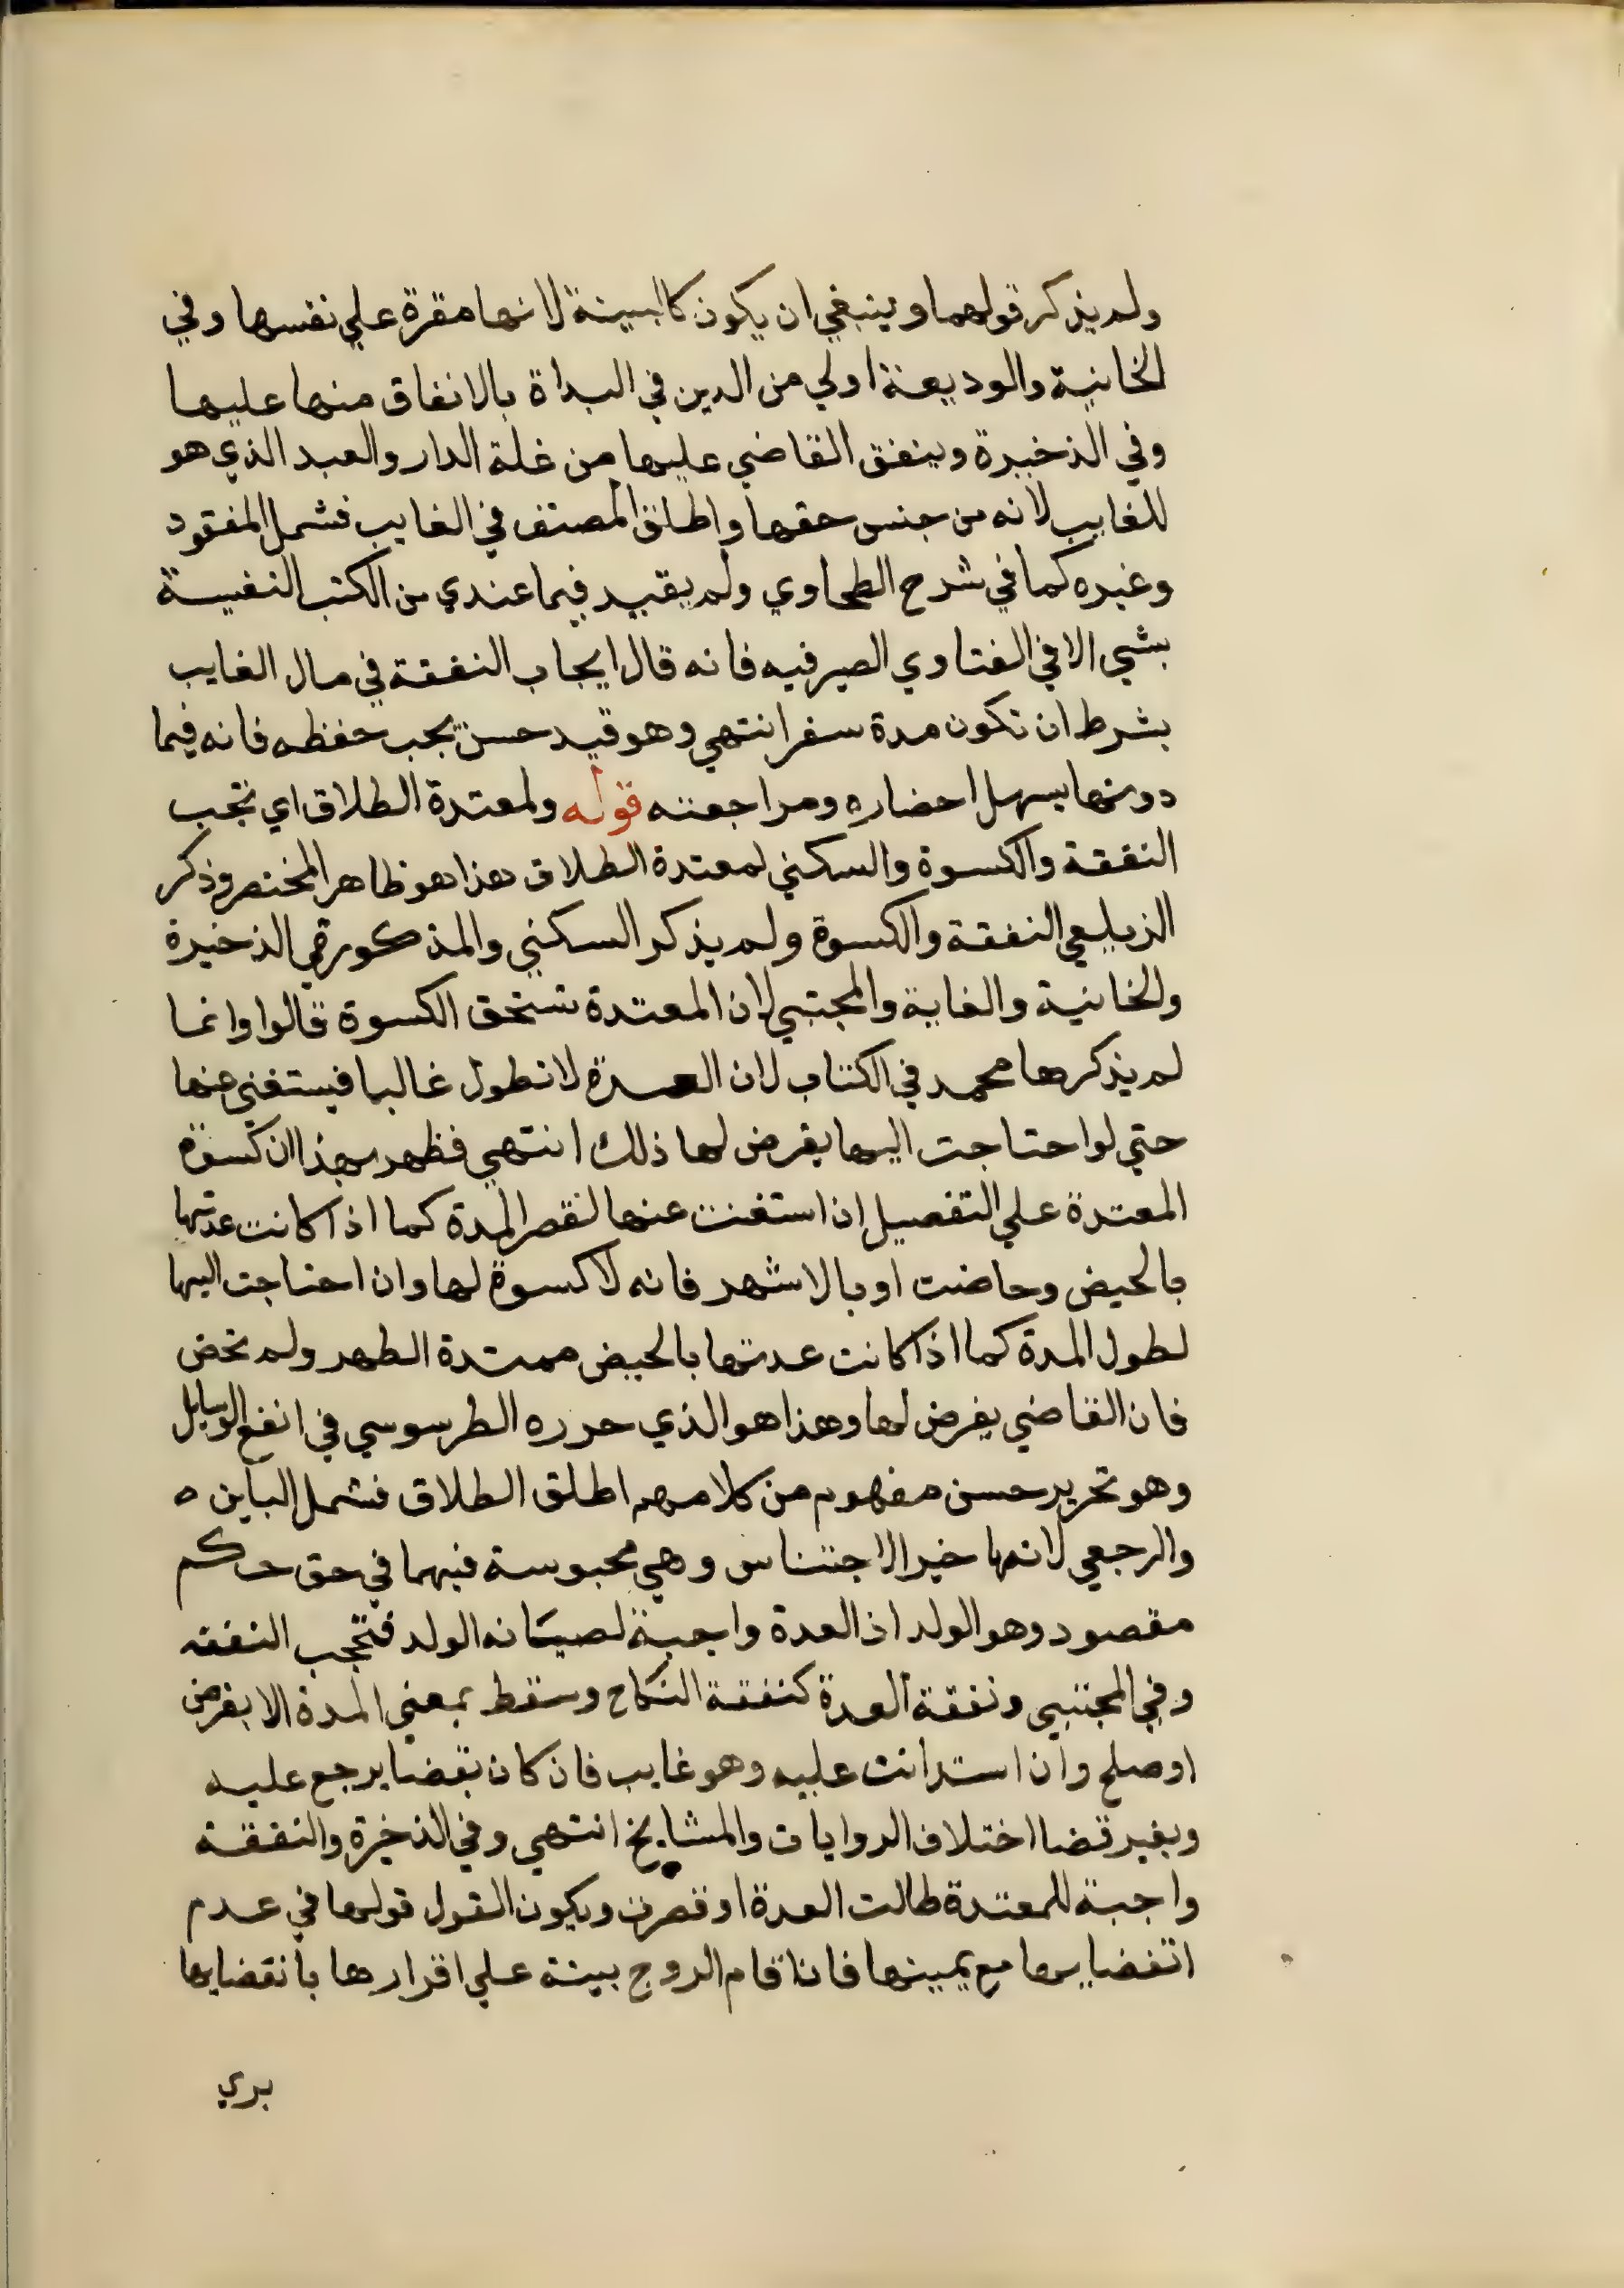 ولم يذكر قولهما وينبغي ان يكون كالبينة لانها مقرة علي نفسها وفي
الخانية والوديعة اولي من الدين في البداة بالانفاق منها عليها
وفي الذخيرة وينفق القاضي عليها من غلة الدار والعبد الذي هو
للغايب لانه من جنس حقها واطلق المصنف في الغايب فشمل المفقود
وغيره كما في شرح الطحاوي ولم يقيد فيما عندي من الكتب النفيسة
بشي الا في الفتاوي الصيرفيه فانه قال ايجاب النفقة في مال الغايب
بشرط ان تكون مدة سفر انتهي وهو قيد حسن يجب حفظه فانه فيما
دونها يسهل احضاره ومراجعته قوله ولمعتدة الطلاق اي تجب
النفقة والكسوة والسكني لمعتدة الطلاق هذا هو ظاهر المختصر وذكر
الزيلعي النفقة والكسوة ولم يذكر السكني والمذكور في الذخيرة
والخانية والغاية والمجتبي لان المعتدة تستحق الكسوة قالوا وانما
لم يذكرها محمد في الكتاب لان العدة لا تطول غالبا فيستغني عنها
حتي لو احتاجت اليها يفرض لها ذلك انتهي فظهر بهذا ان كسوة
المعتدة علي التفصيل اذا استغنت عنها لقصر المدة كما اذا كانت عدتها
بالحيض وحاضت او بالاشهر فانه لا كسوة لها وان احتاجت اليها
لطول المدة كما اذا كانت عدتها بالحيض ممتدة الطهر ولم تحض
فان القاضي يفرض لها وهذا هو الذي حرره الطرسوسي في انفع الوسايل
وهو تحرير حسن مفهوم من كلامهم اطلق الطلاق فشمل الباين ه
والرجعي لانها خير الاجتناس وهي محبوسة فيهما في حق حكم
مقصود وهو الولد اذ العدة واجبة لصيانه الولد فتجب النفقه
وفي المجتبي ونفقة العدة كنفقة النكاح وسقط بمعني المدة الا بفرض
او صلح وان استدانت عليه وهو غايب فان كان بقضا يرجع عليه
وبغير قضا اختلاف الروايات والمشايخ انتهي وفي الذخيرة والنفقة
واجبة للمعتدة طالت العدة او قصرت ويكون القول قولها في عدم
انقضايها مع يمينها فان اقام الزوج بينة علي اقرارها بانقضايها
بري